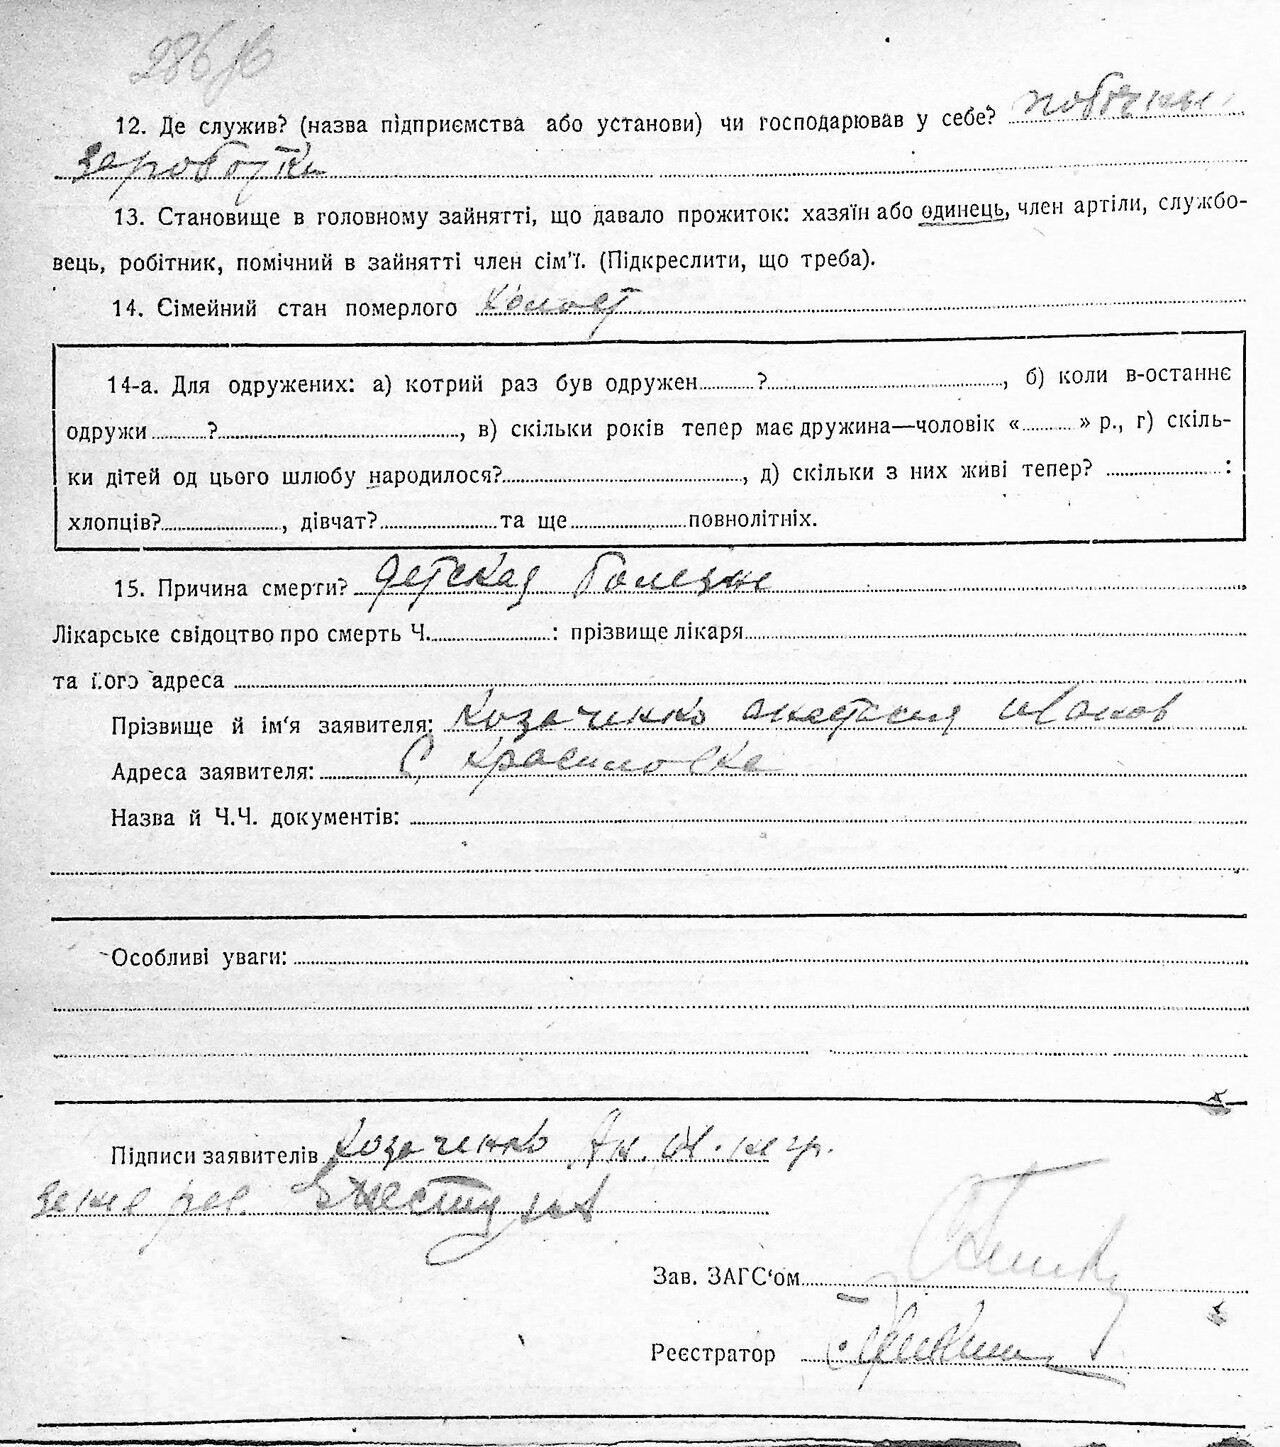 286
12. Де служив? (назва підприємства або установи) чи господарював у себе? побочные
заработки
13. Становище в головному зайнятті, що давало прожиток: хазяїн або одинець, член артілі, службо-
вець, робітник, помічний в зайнятті член сім'ї. (Підкреслити, що треба).
14. Сімейний стан померлого холост
14-а. Для одружених: а) котрий раз був одружен..........?.............................., б) коли в-останнє
одружи..........?.............................., в) скільки років тепер має дружина—чоловік «..........» р., г) скіль-
ки дітей од цього шлюбу народилося?.............................., д) скільки з них живі тепер? ....................:
хлопців?...................., дівчат?....................та ще....................повнолітніх.
15. Причина смерти? Детская болезнь
Лікарське свідоцтво про смерть Ч.....................: прізвище лікаря..............................
та його адреса ..............................
Прізвище й ім'я заявителя: Козаченко Анастасия Иванов
Адреса заявителя: С Красиловка
Назва й Ч.Ч. документів: ..............................
Особливі уваги: ..............................
Підписи заявителів Козаченко Ан. Ив. негр.
за нее рос.
Зав. ЗАГС'ом
Реєстратор